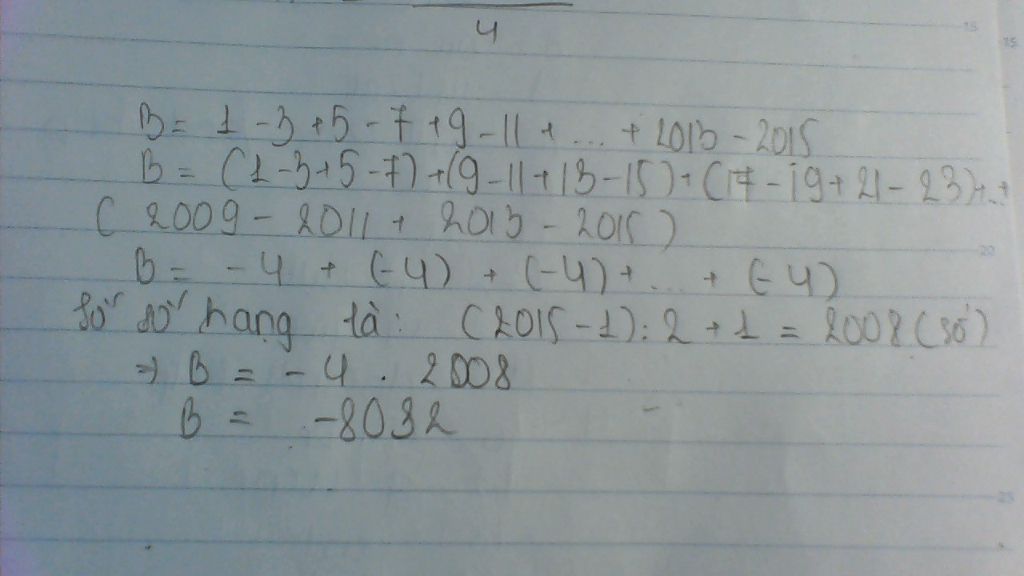 4
B = 1 - 3 + 5 - 7 + 9 - 11 + ... + 2013 - 2015
B = (1 - 3 + 5 - 7) + (9 - 11 + 13 - 15) + (17 - 19 + 21 - 23) + ... +
( 2009 - 2011 + 2013 - 2015 )
B = - 4 + (-4) + (-4) + ... + (-4)
Số số hạng là: (2015 - 1) : 2 + 1 = 2008 (số)
=> B = - 4 . 2008
B = -8032